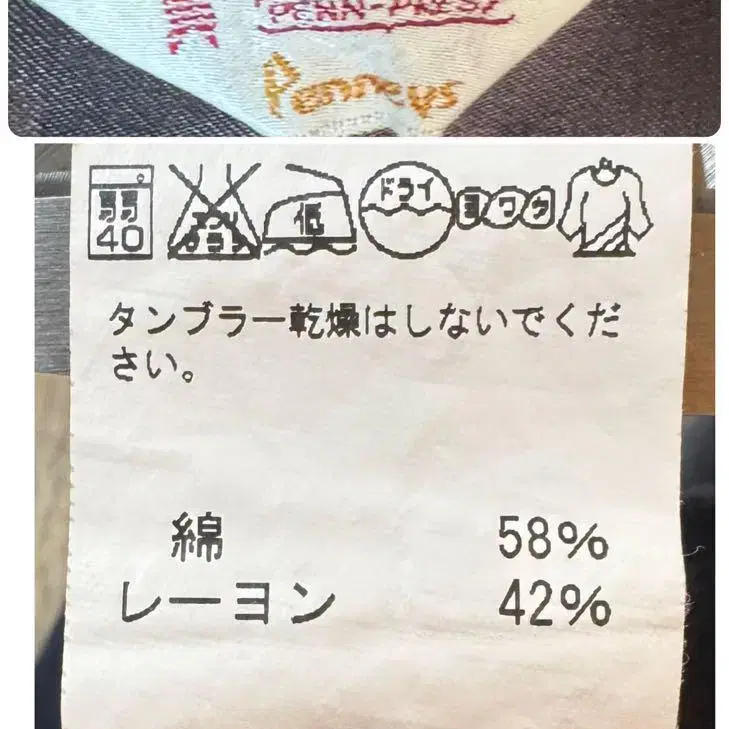 PENN-PREST
Penneys
弱
40
エンソ
サラシ
低
ドライ
ヨワク
タンブラー乾燥はしないでくだ
さい。
綿 58%
レーヨン 42%